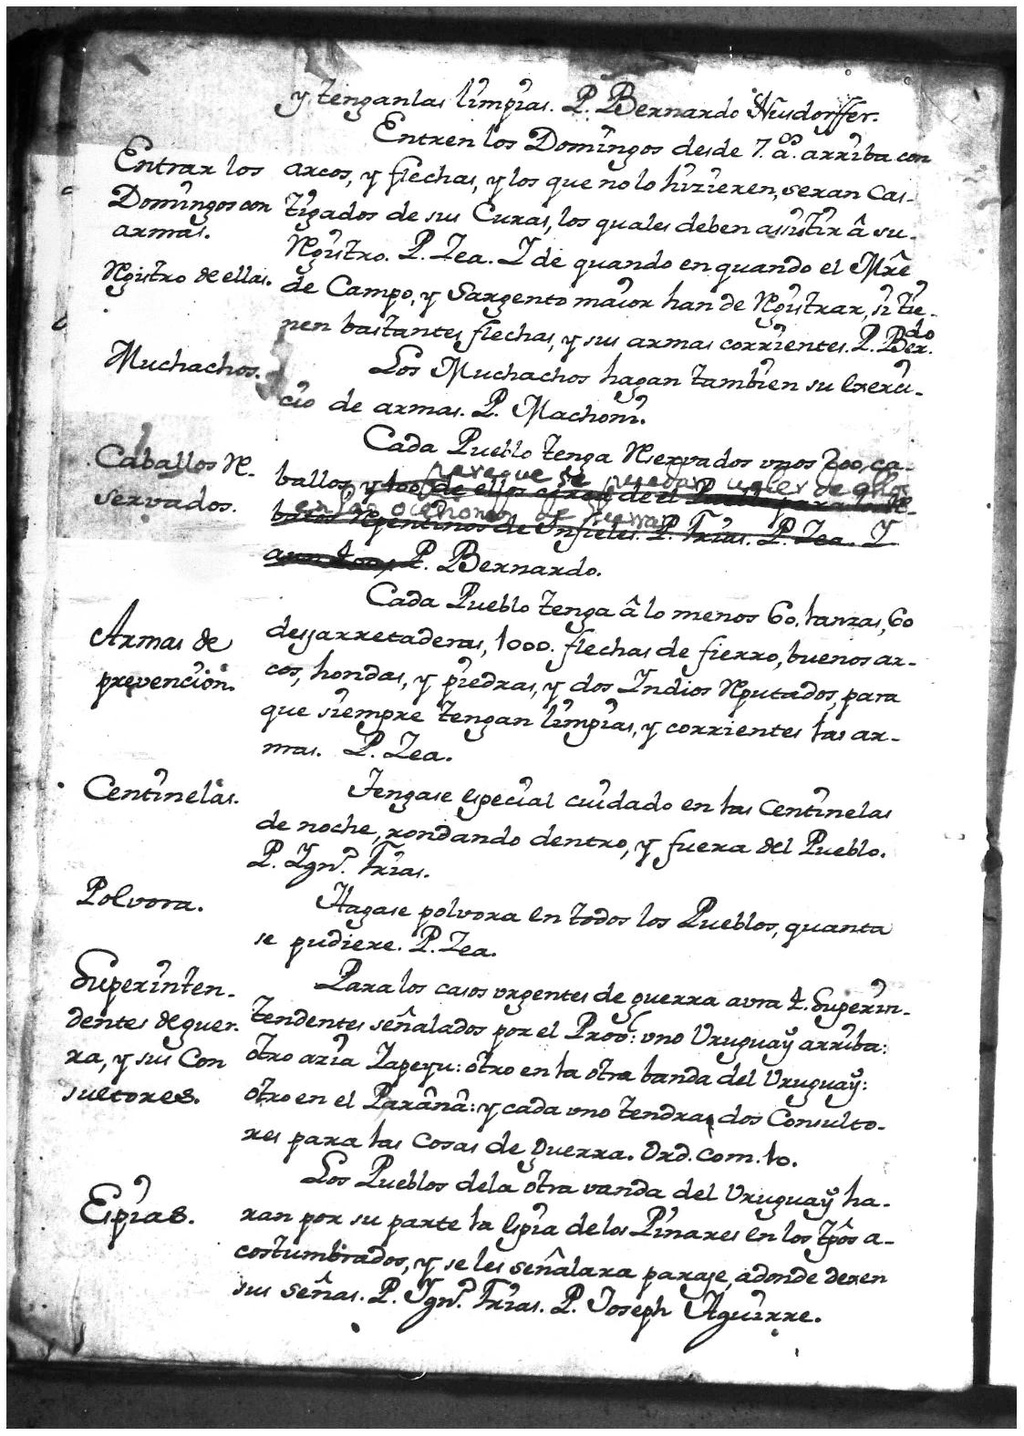 y tenganlas limpias. P. Bernardo Nusdorffer.
Entren los Domingos desde 7. aˢ. arriba con
Entrar los
arcos, y flechas, y los que no lo hizieren, seran cas-
Domingos con
armas.
tigados de sus Curas, los quales deben assistir â su
Rgistro de ellas.
Rgistro. P. Zea. I de quando en quando el Mrê
de Campo, y Sargento maior han de Rgistrar, si tie-
nen bastantes flechas, y sus armas corrientes. P. Berdo.
Muchachos.
Los Muchachos hagan tambien su Exerci-
cio de armas. P. Machoni.
Caballos R.
servados.
Cada Pueblo tenga Rservados unos 200, ca-
ballos, y 100 de ellos cerca de el Pueblo para los R-
paraque se puedan valer de ellos
batos Rpentinos de Infieles. P. Frias. P. Zea. I
en las ocasiones de guerra
P. Bernardo.
Armas de
prevención.
Cada Pueblo tenga â lo menos 60, lanzas, 60
desjarretaderas, 1000. flechas de fierro, buenos ar-
cos, hondas, y piedras, y dos Indios Rputados, para
que siempre tengan limpias, y corrientes las ar-
mas. P. Zea.
Centinelas.
Tengase especial cuidado en las Centinelas
de noche, rondando dentro, y fuera del Pueblo.
P. Ignº. Frias.
Polvora.
Hagase polvora en todos los Pueblos, quanta
se pudiere. P. Zea.
Superinten-
dentes de guer-
ra, y sus Con
sultores.
Para los casos urgentes de guerra avra 4. Superin-
tendentes señalados por el Provˡ: uno Uruguaÿ arriba:
otro azia Iapeyu: otro en la otra banda del Uruguaÿ:
otro en el Parânâ: y cada uno tendra dos Consulto-
res para las cosas de guerra. Ord. com. 10.
Espias.
Los Pueblos dela otra vanda del Uruguaÿ ha-
ran por su parte la Espia de los Pinares en los tpôs a-
costumbrados, y se les señalara paraje, adonde dexen
sus señas. P. Ignº. Frias. P. Joseph Aguirre.